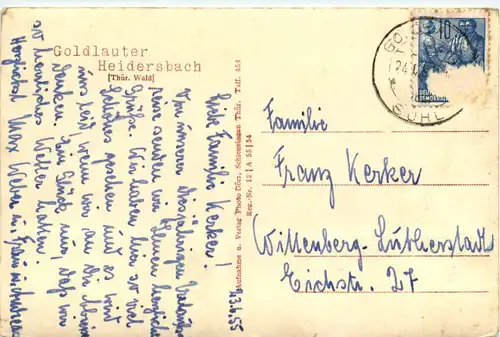 Goldlauter
Heidersbach
[Thür. Wald]
23.6.55
Liebe Familie Kerker!
Von unserer diesjährigen Urlaubs-
reise senden wir Ihnen herzliche
Grüße. Wir haben hier so viel
Schönes gesehen und es wird
uns leid, wenn wir an die Heim
denken. Ein Glück nur, daß wir
so herrliches Wetter hatten.
Herzlichst Max Weber u. Frau
Aufnahme u. Verlag Photo Dörr, Schleusingen Thür. Telf. 454
Reg.-Nr. A 55/54
GO
24.
SUHL
10
DEUT
DEMOKRA
Familie
Franz Kerker
Wittenberg-Lutherstadt
Eichstr. 27